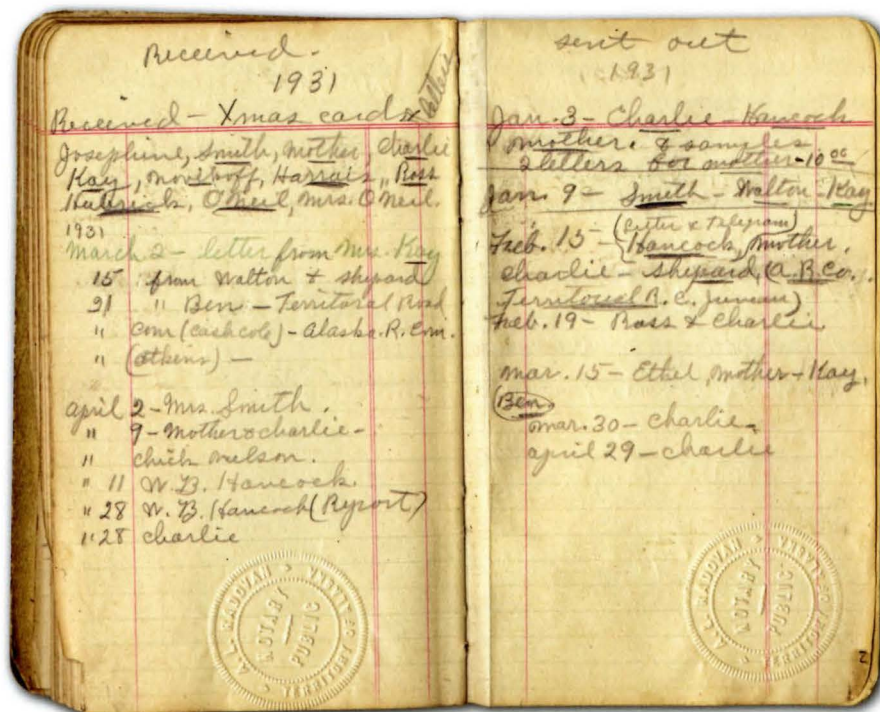 Received.
1931
Received - Xmas card & letters
Josephine, Smith, Mother, Charlie
Kay, Harrais, Ross
O'Neil, Mrs. O'Neil.
1931
March 2 - letter from Mrs. Kay
15 from Walton & Shepard
21 " Ben - Territorial Road
" Com (Cash Cole) - Alaska. R. Com.
" (Atkins) -
April 2 - Mrs. Smith.
" 9 - Mother & Charlie -
" Chick Nelson.
" 11 W. B. Hancock
" 28 W. B. Hancock (Report)
" 28 Charlie
A. L. RADOVAN
NOTARY
PUBLIC
TERRITORY OF ALASKA
sent out
1931
Jan. 3 - Charlie - Hancock
Mother. & samples
2 letters for mother - 10 00
Jan. 9 - Smith - Walton - Kay
(letter & Telegram)
Feb. 15 - Hancock, Mother.
Charlie - Shepard, (A. B. Co.)
Territorial R. C. Juneau)
Feb. 19 - Ross & Charlie
Mar. 15 - Ethel, Mother - Kay,
Ben
Mar. 30 - Charlie -
April 29 - Charlie
A. L. RADOVAN
NOTARY
PUBLIC
TERRITORY OF ALASKA
2